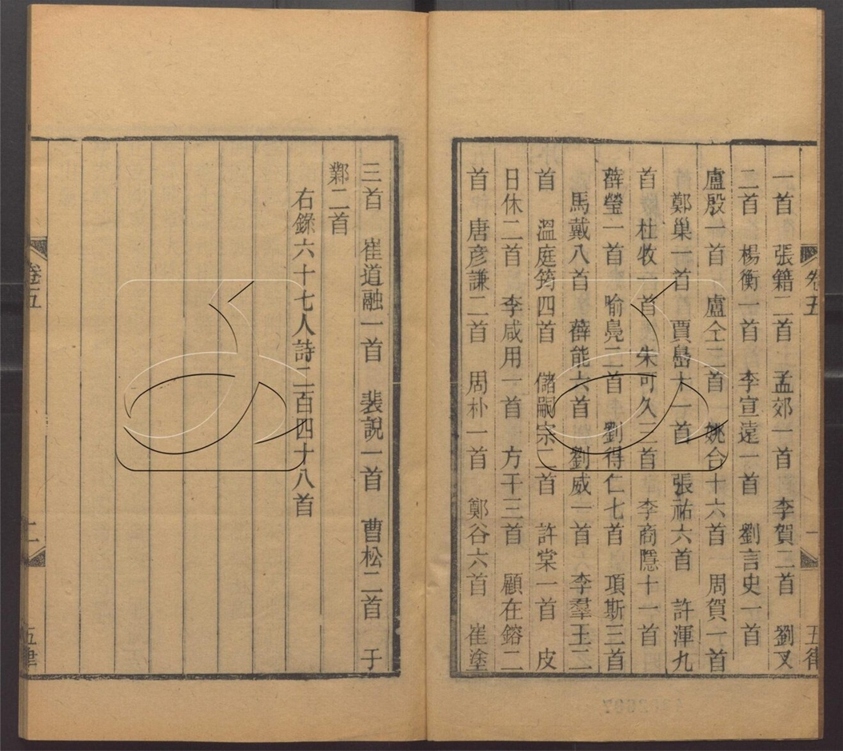 卷五
一
五律
一首　張籍二首　孟郊一首　李賀二首　劉叉
二首　楊衡一首　李宣遠一首　劉言史一首
盧殷一首　盧仝二首　姚合十六首　周賀一首
鄭巢一首　賈島十一首　張祐六首　許渾九
首　杜牧一首　朱可久三首　李商隱十一首
薛瑩一首　喻鳧二首　劉得仁七首　項斯三首
馬戴八首　薛能六首　劉威一首　李羣玉二
首　溫庭筠四首　儲嗣宗二首　許棠一首　皮
日休二首　李咸用一首　方干三首　顧在鎔二
首　唐彥謙二首　周朴一首　鄭谷六首　崔塗
三首　崔道融一首　裴說一首　曹松二首　于
鄴二首
右錄六十七人詩二百四十八首
卷五
二
五律